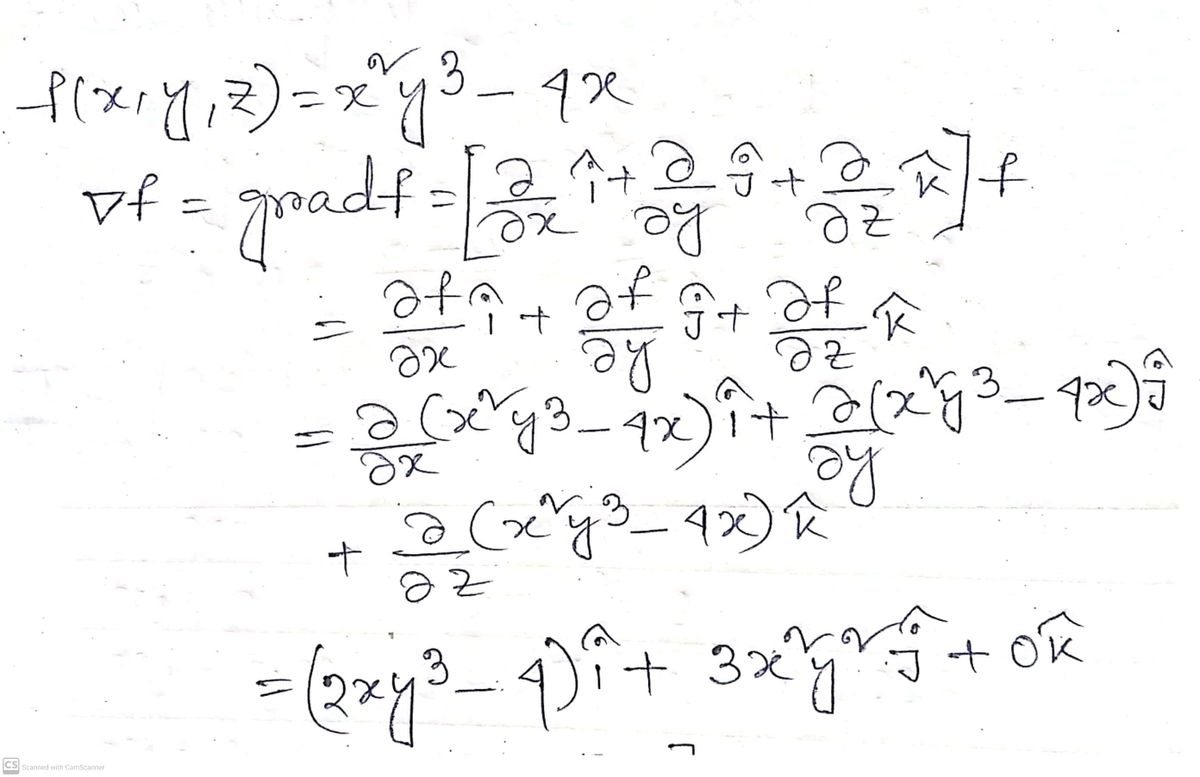 f(x,y,z)=x²y³-4x
∇f = gradf = [∂/∂x î + ∂/∂y ĵ + ∂/∂z k̂] f
= ∂f/∂x î + ∂f/∂y ĵ + ∂f/∂z k̂
= ∂/∂x (x²y³-4x) î + ∂/∂y (x²y³-4x) ĵ
+ ∂/∂z (x²y³-4x) k̂
= (2xy³-4) î + 3x²y² ĵ + 0k̂
CS Scanned with CamScanner